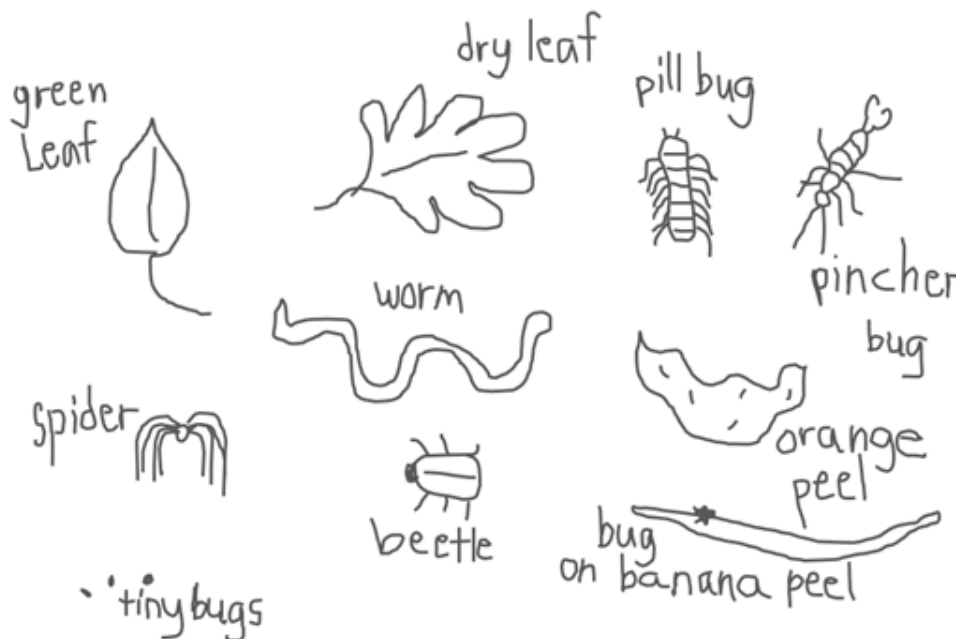 green
Leaf
dry leaf
pill bug
pincher
bug
worm
spider
orange
peel
beetle
bug
on banana peel
tiny bugs